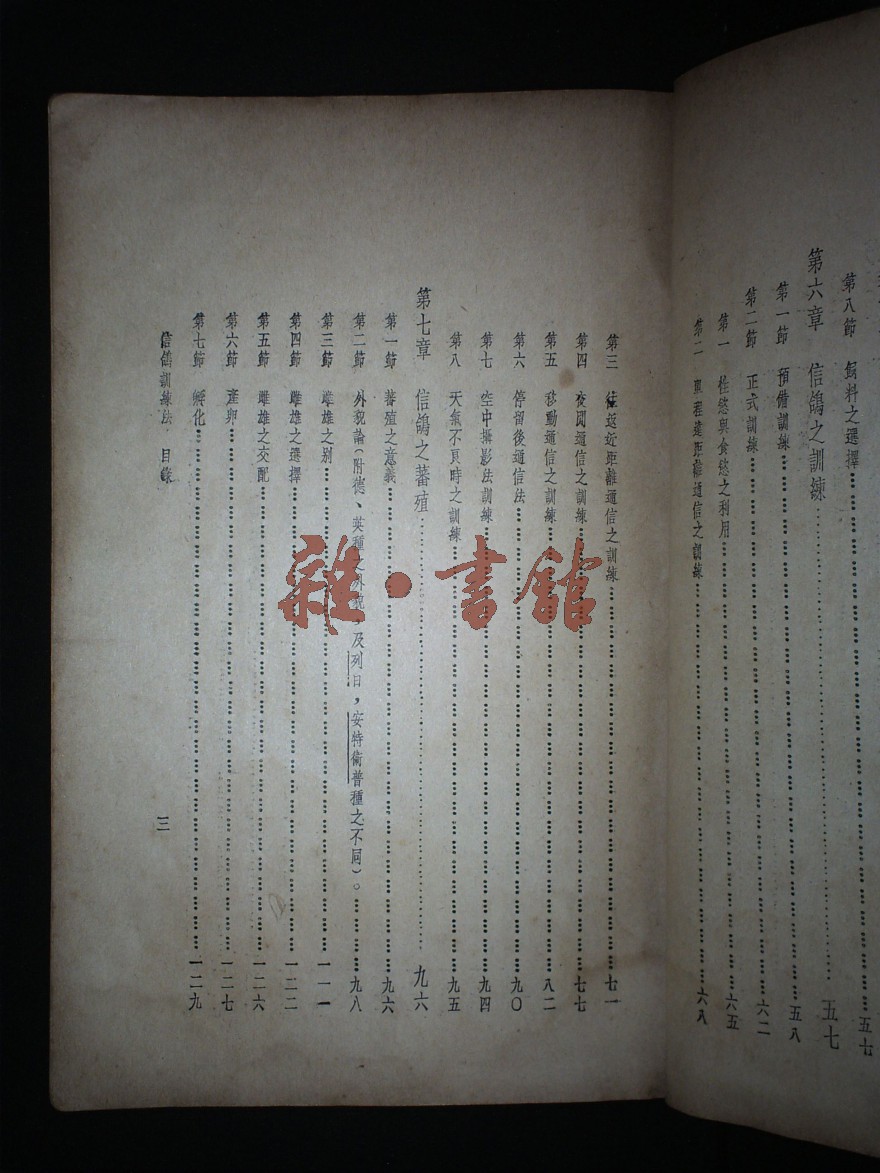 第八節 飼料之選擇……五七
第六章 信鴿之訓練……五七
第一節 預備訓練……五八
第二節 正式訓練……六二
第一 性慾與食慾之利用……六五
第二 單程遠距離通信之訓練……六八
第三 往返近距離通信之訓練……七一
第四 夜間通信之訓練……七七
第五 移動通信之訓練……八二
第六 停留後通信法……九〇
第七 空中攝影法訓練……九四
第八 天氣不良時之訓練……九五
第七章 信鴿之蕃殖……九六
第一節 蕃殖之意義……九六
第二節 外貌論(附德、英種之外貌,及列日,安特衛普種之不同)。……九八
第三節 雌雄之别……一一一
第四節 雌雄之選擇……一二二
第五節 雌雄之交配……一二六
第六節 產卵……一二七
第七節 孵化……一二九
信鴿訓練法 目錄
三
雜·書舘